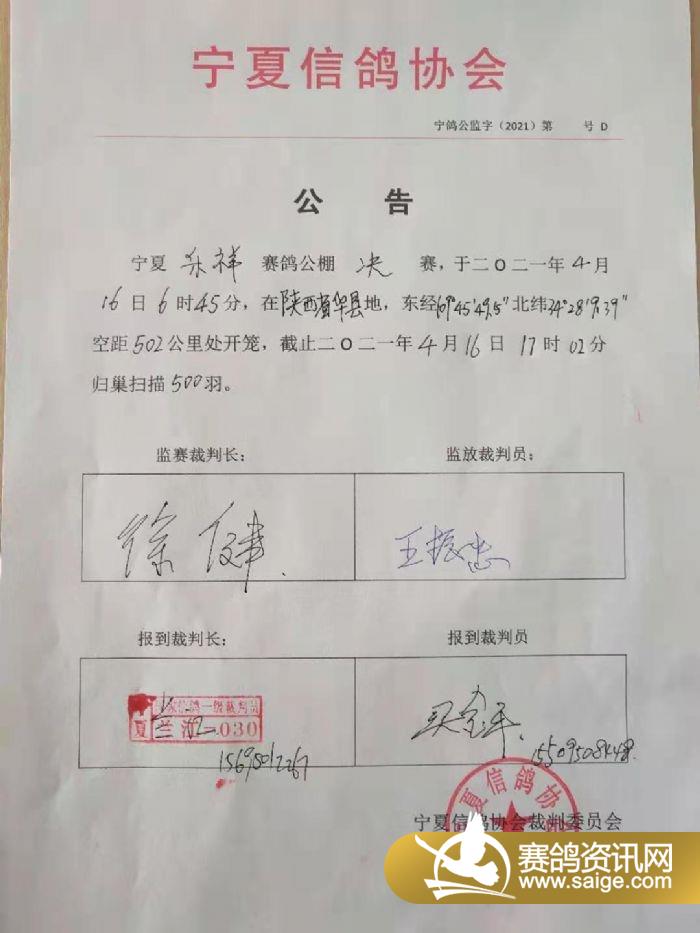 宁夏信鸽协会
宁鸽公监字（2021）第 号 D
公 告
宁夏 乐祥 赛鸽公棚 决 赛，于二〇二一年 4 月
16 日 6 时 45 分，在陕西省华县地，东经109°45'49.5"北纬34°28'9.39"
空距 502 公里处开笼，截止二〇二一年 4 月 16 日 17 时 02 分
归巢扫描 500 羽。
监赛裁判长： 监放裁判员：
徐健 王振忠
报到裁判长： 报到裁判员
信鸽一级裁判员
夏兰 030
宁夏信鸽协会裁判委员会
夏信鸽协
赛鸽资讯网
www.saige.com